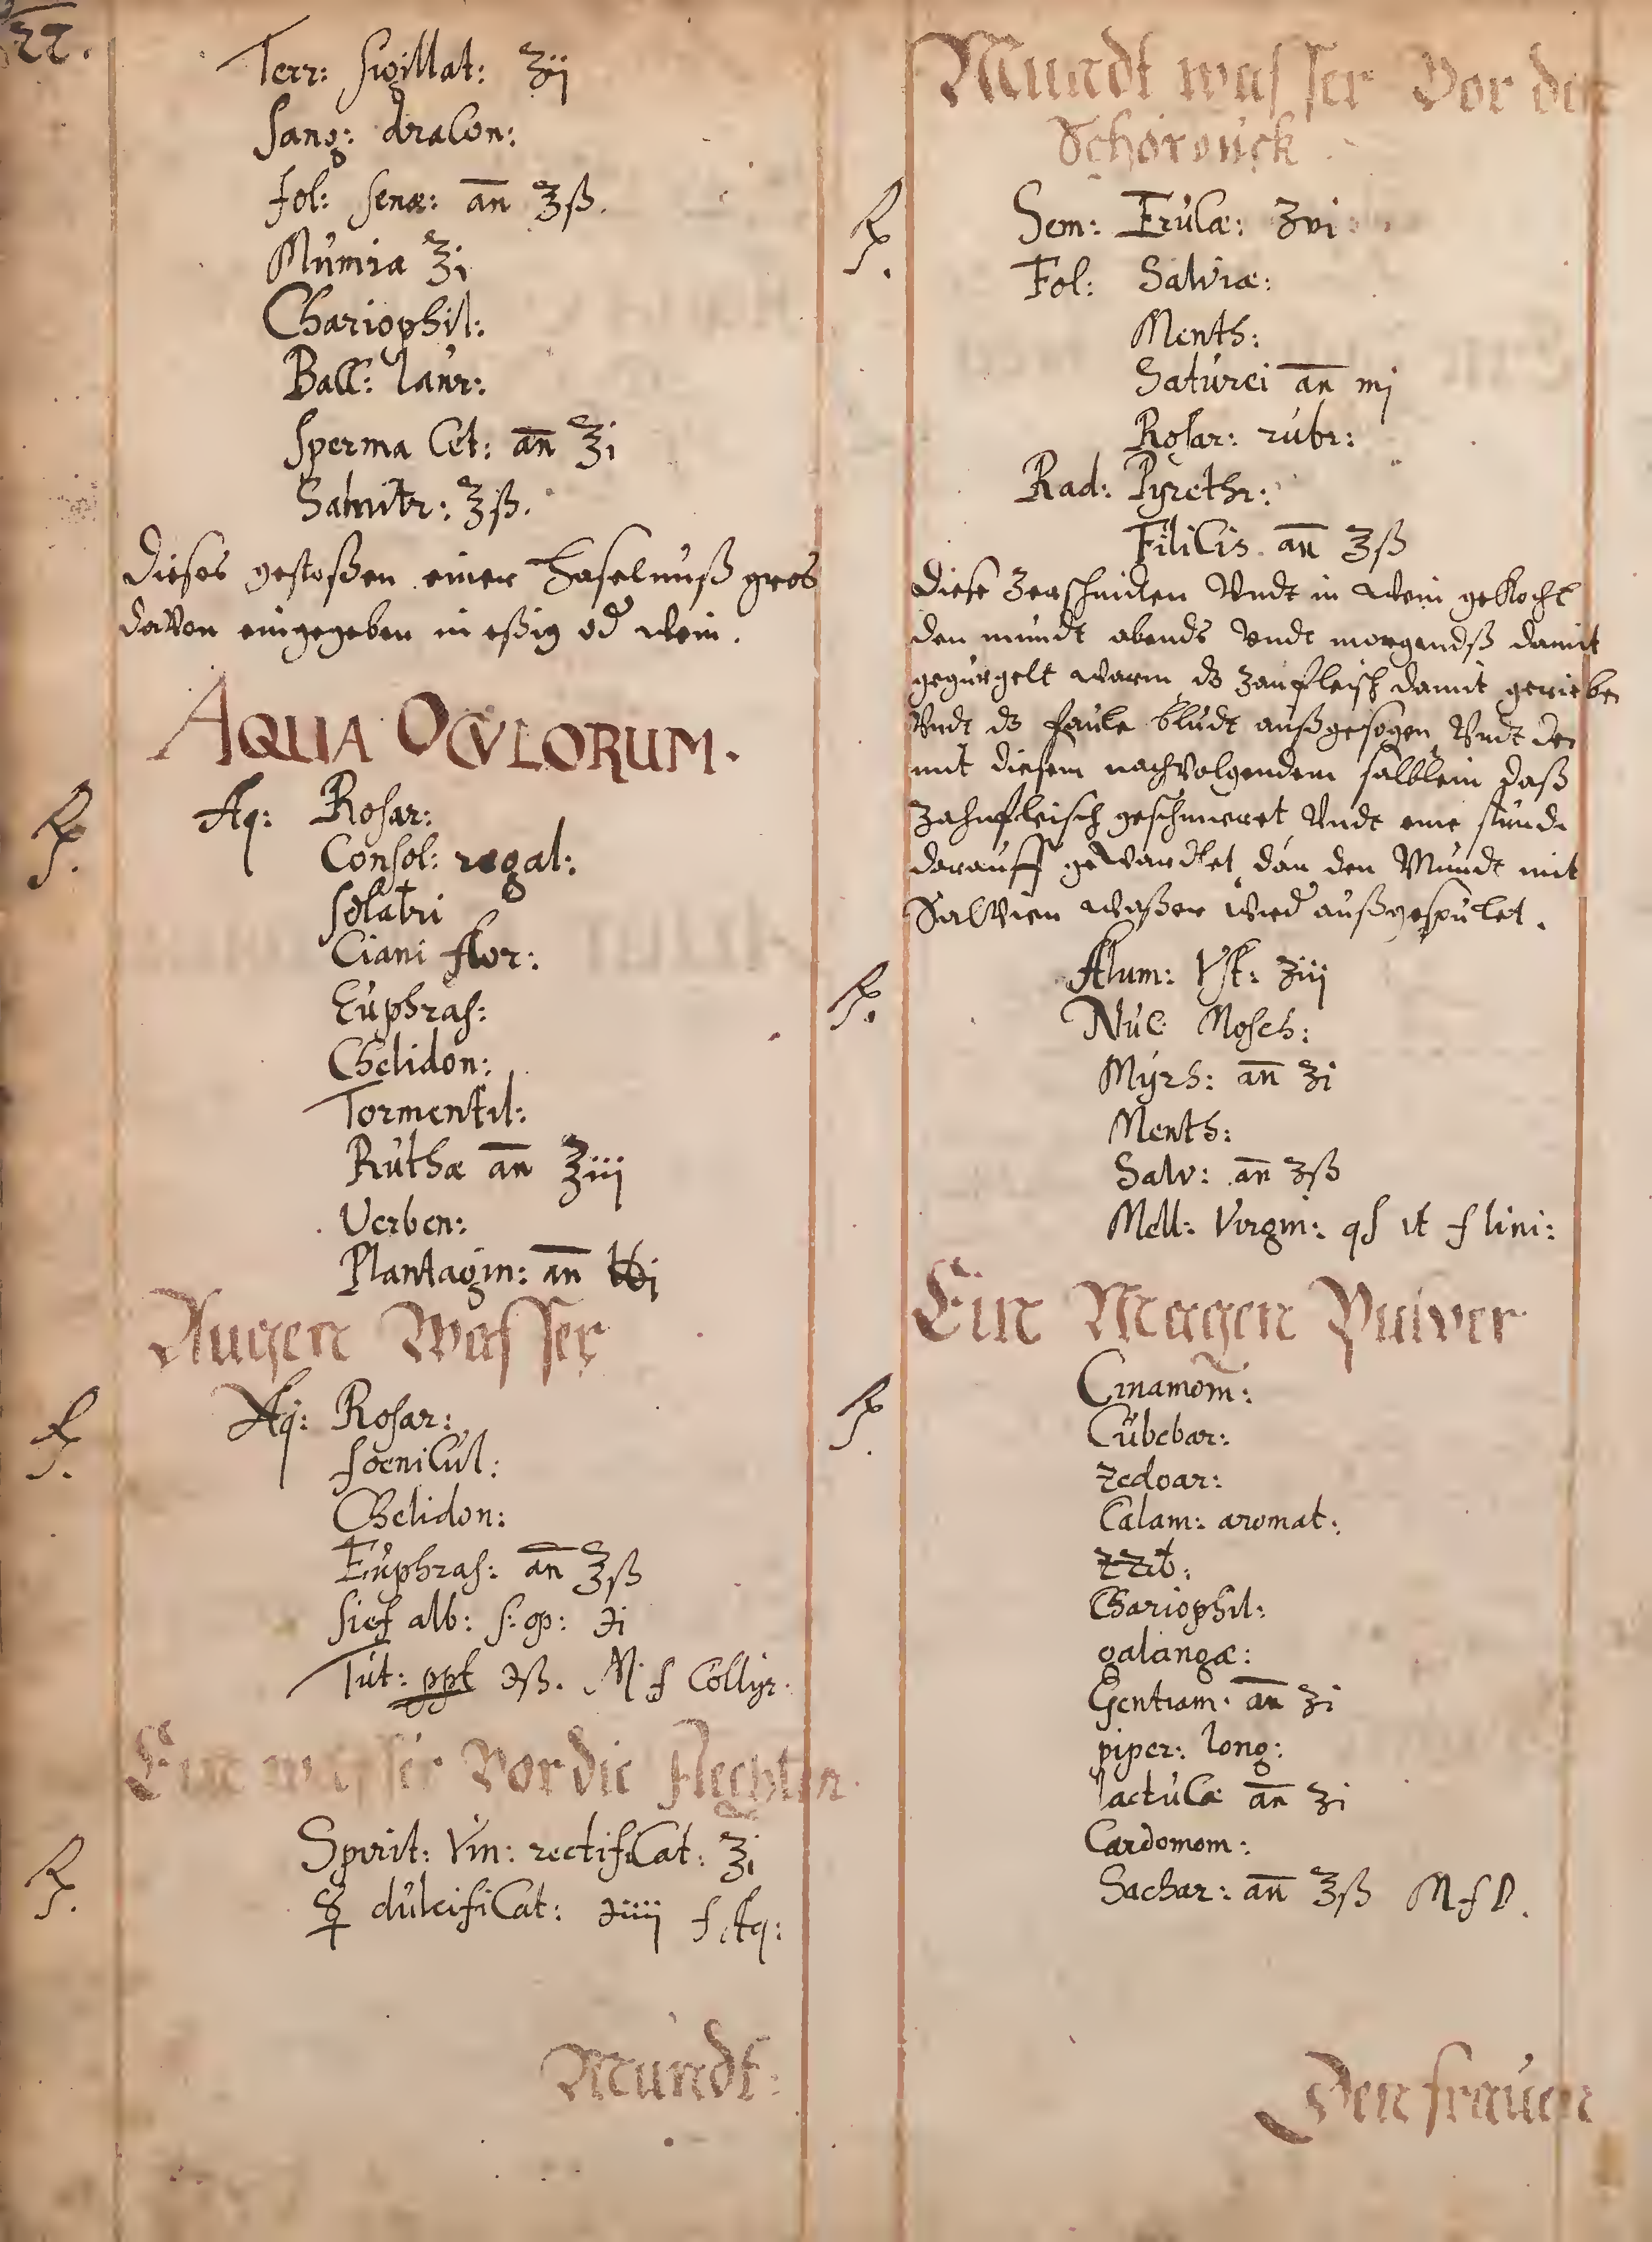 22.
Terr: sigillat: ʒij
Sang: dracon:
fol: senæ: an̄ ʒß.
Mumia ʒi
Chariophil:
Bacc: laur:
sperma Cet: an̄ ʒi
Salnitr: ʒß.
Dieses gestoßen einer Haselnuß gros
davon eingegeben in eßig od wein.
AQUA OCVLORUM.
℞. Aq: Rosar:
Consol: regal:
solatri
Ciani flor:
Euphras:
Chelidon:
Tormentil:
Ruthæ an̄ ʒiij
Verben:
Plantagin: an̄ ℔i
Augen Wasser
℞. Aq: Rosar:
foenicul:
Chelidon:
Euphras: an̄ ʒß
sief alb: s: op: ℈i
Tut: ppt ℈ß. M f Collyr.
Ein wasser Vor die Flechten.
℞. Spirit: Vin: rectificat: ʒi
☿ dulcificat: ℈iiij f Aq:
Mundt:
Mundt wasser Vor den
Schorbuck.
℞. Sem: Erucæ: ʒvi
Fol: Salviæ:
Menth:
Saturei an̄ mj
Rosar: rubr:
Rad: Pyrethr:
Filicis an̄ ʒß
Diese zerschniden Vndt in wein gekocht
den mundt abends Vndt morgendß damit
gegurgelt warm, dz zanfleisch damit gerieben
Vndt dz faule bludt außgesogen, Vndt den
mit diesem nachvolgendem sälblein daß
zahnfleisch geschmeret Vndt eine stunde
darauff gewardtet, dan den Mundt mit
Salvien waßer wied außgespulet.
℞. Alum: Vst: ʒiij
Nuc Mosch:
Myrh: an̄ ʒi
Menth:
Salv: an̄ ʒß
Mell: Virgin: qs ut f lini:
Ein Magen Pulver
℞. Cinamom:
Cubebar:
zedoar:
Calam: aromat:
zzib:
Chariophil:
galangæ:
Gentiam. an̄ ʒi
piper: long:
lactucæ an̄ ʒi
Cardomom:
Sachar: an̄ ʒß M f P.
Den frauen